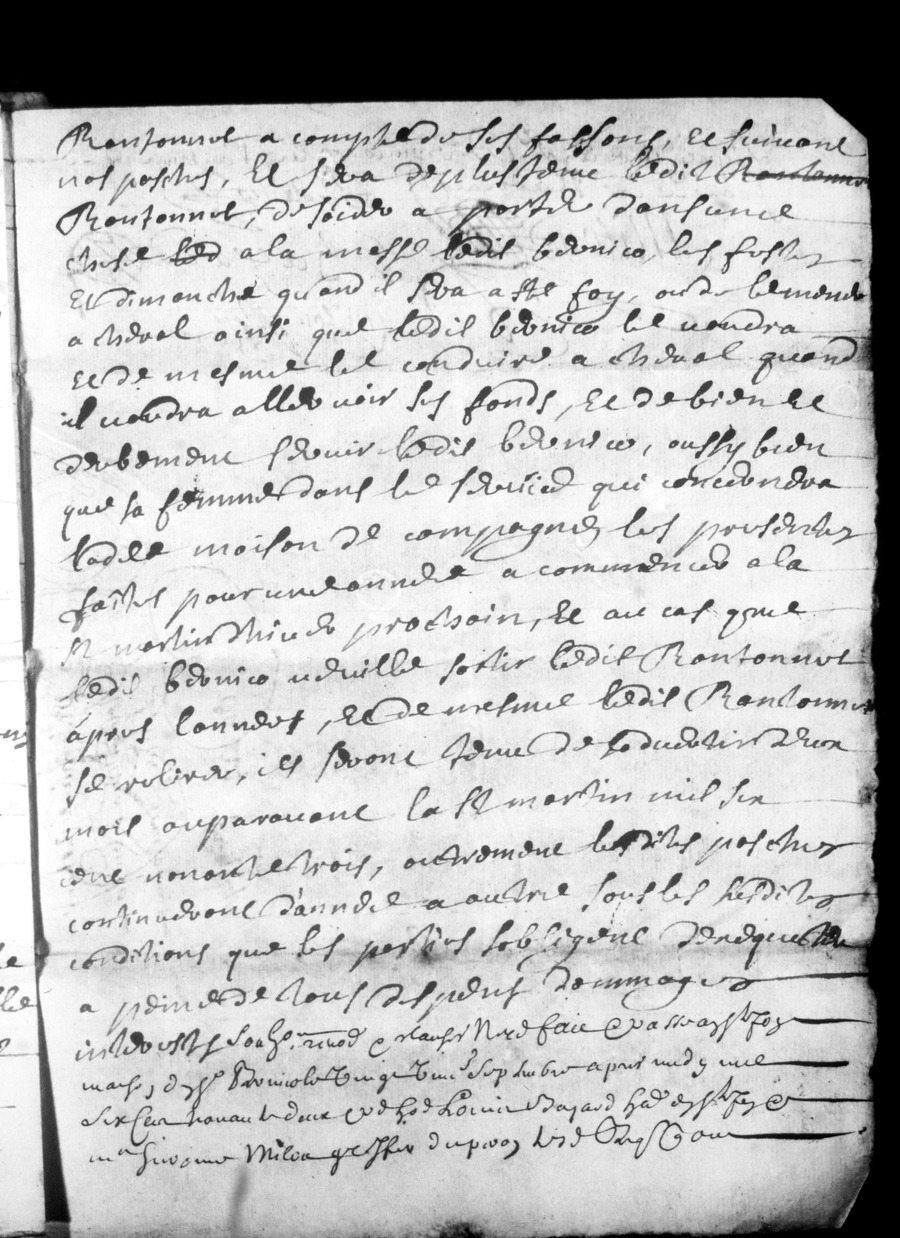 Rantonnet a compte de ses fassons, et suivant
nos pasches, Et sera de plus tenu ledit Rantonne
Rantonnet, de soider a porter dans une
chese led a la messe ledit bernico, les festes
Et dimanche quand il sera a Ste foy, ou de le mener
a cheval ainsi que ledit bernico le voudra
Et de mesme le conduire a cheval quand
il voudra aller voir ses fonds, Et de bien Et
deubement servir ledit bernico, aussy bien
que sa femme dans le service qui conscernera
ladte maison de compagne, les presentes
faites pour une année a commencer a la
St martin d'hiver prochain, Et au cas que
ledit bernico veuille sortir ledit Rantonnet
apres l'annee, Et de mesme ledit Rantonnet
se retirer, ils seront tenu de s'advertir deux
mois auparavant la St martin mil six
cent nonante trois, autrement lesdites pasches
continueront d'année a autre sous les susdites
conditions que les parties s'obligent
a peine de tous despens dommages
interests soubs. renon. & clauses Nre fait & passe a Ste foy
maison dud Sr Bernico le vingt septembre apres midy mil
Six Cent nonante deux Bajard hat de Ste foy &
Me Milon greffier